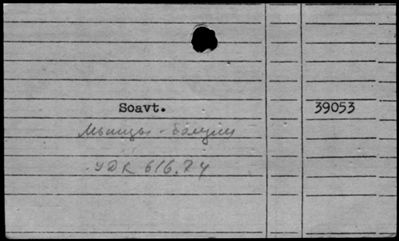 Soavt. 39053
Мышцы - болезни
УДК 616.74